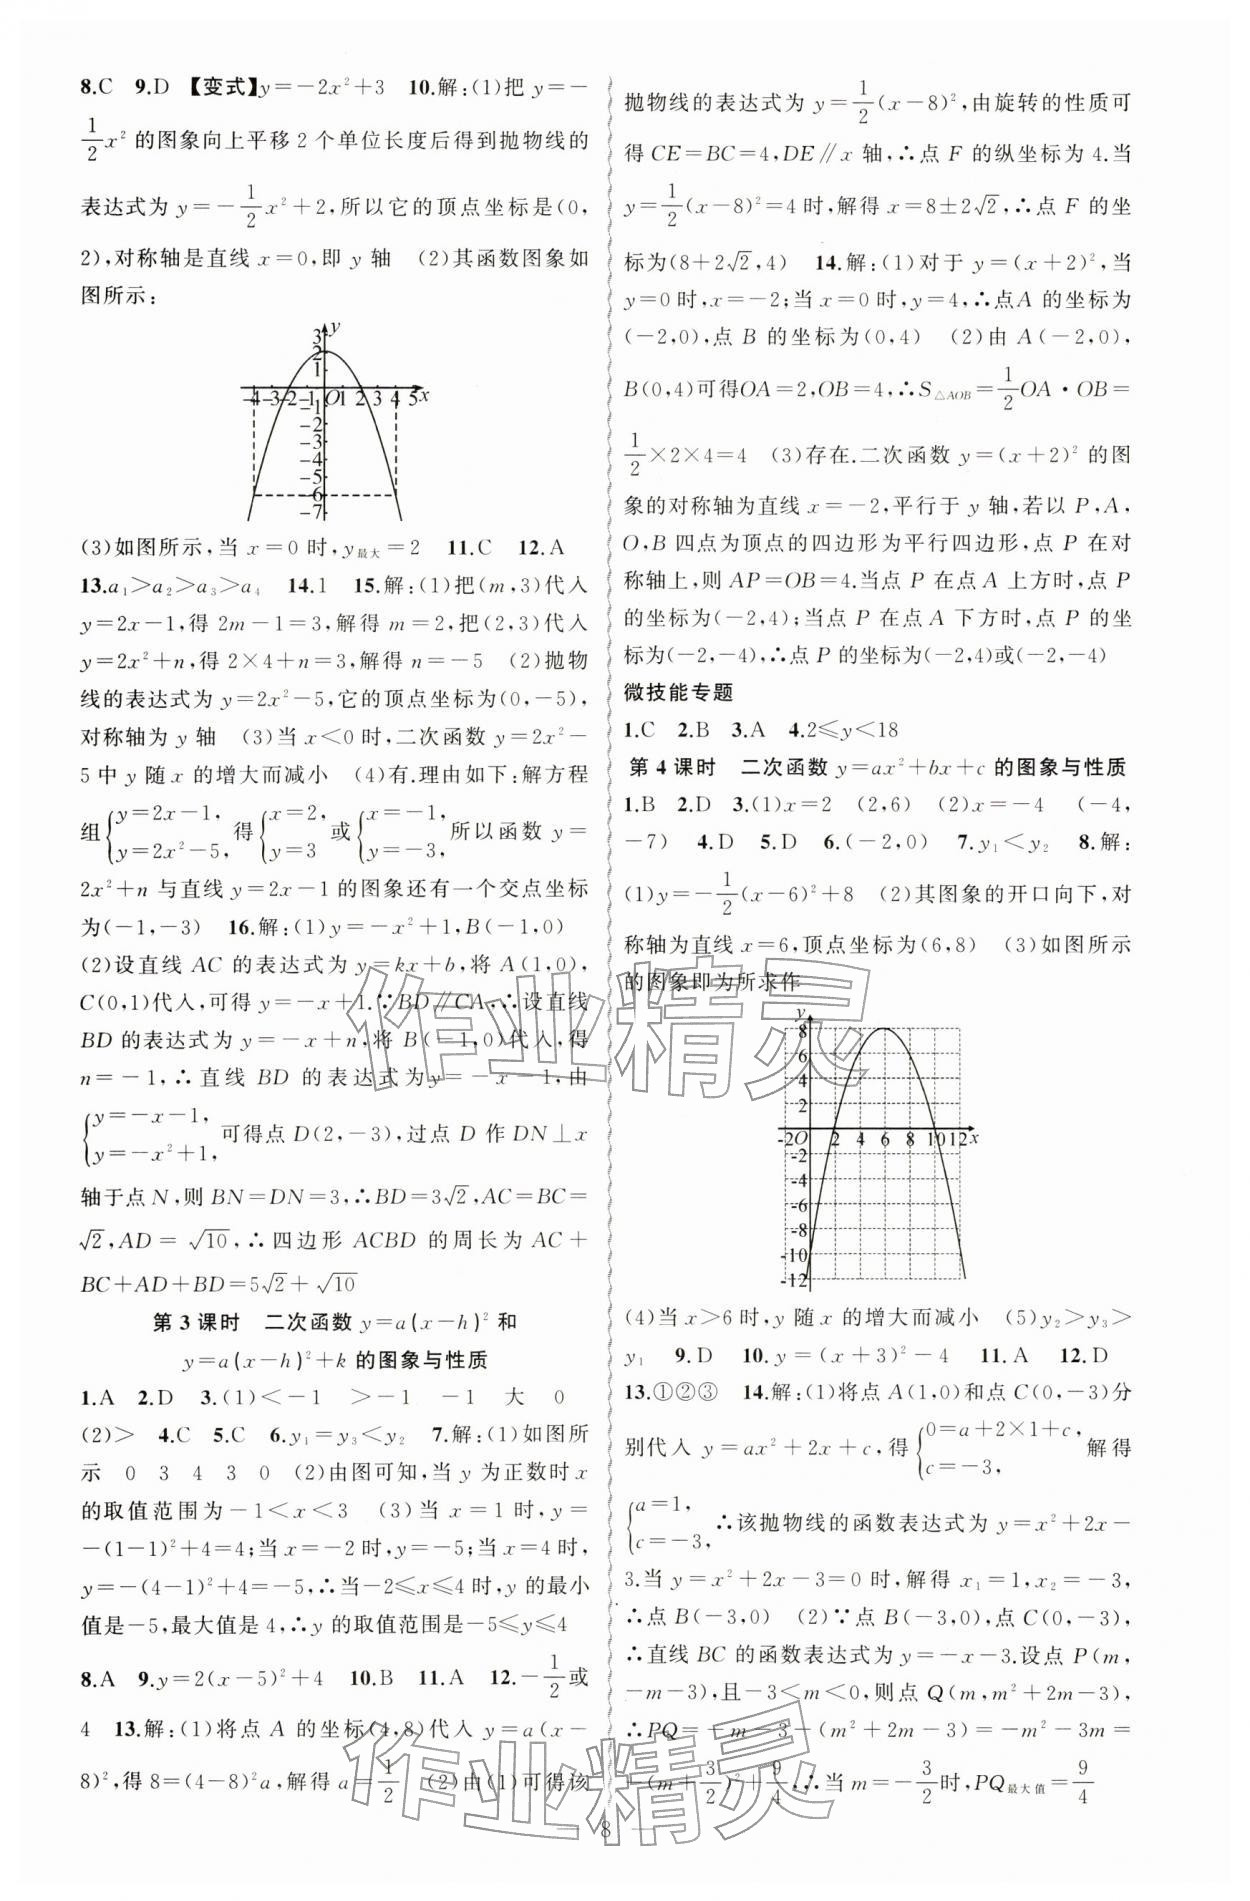 8.C 9.D 【变式】y=-2x²+3 10.解:(1)把 y=-
1/2 x² 的图象向上平移 2 个单位长度后得到抛物线的
表达式为 y=-1/2 x²+2,所以它的顶点坐标是(0,
2),对称轴是直线 x=0,即 y 轴 (2)其函数图象如
图所示:
3 y
2
1
-4-3-2-1 O 1 2 3 4 5 x
-1
-2
-3
-4
-5
-6
-7
(3)如图所示,当 x=0 时,y最大=2 11.C 12.A
13.a₁>a₂>a₃>a₄ 14.1 15.解:(1)把(m,3)代入
y=2x-1,得 2m-1=3,解得 m=2,把(2,3)代入
y=2x²+n,得 2×4+n=3,解得 n=-5 (2)抛物
线的表达式为 y=2x²-5,它的顶点坐标为(0,-5),
对称轴为 y 轴 (3)当 x<0 时,二次函数 y=2x²-
5 中 y 随 x 的增大而减小 (4)有.理由如下:解方程
组{y=2x-1, y=2x²-5, 得{x=2, y=3 或{x=-1, y=-3, 所以函数 y=
2x²+n 与直线 y=2x-1 的图象还有一个交点坐标
为(-1,-3) 16.解:(1)y=-x²+1,B(-1,0)
(2)设直线 AC 的表达式为 y=kx+b,将 A(1,0),
C(0,1)代入,可得 y=-x+1.∵BD∥CA,∴设直线
BD 的表达式为 y=-x+n,将 B(-1,0)代入,得
n=-1,∴直线 BD 的表达式为y=-x-1,由
{y=-x-1, y=-x²+1, 可得点 D(2,-3),过点 D 作 DN⊥x
轴于点 N,则 BN=DN=3,∴BD=3√2,AC=BC=
√2,AD=√10,∴四边形 ACBD 的周长为 AC+
BC+AD+BD=5√2+√10
第 3 课时 二次函数 y=a(x-h)² 和
y=a(x-h)²+k 的图象与性质
1.A 2.D 3.(1)<-1 >-1 -1 大 0
(2)> 4.C 5.C 6.y₁=y₃<y₂ 7.解:(1)如图所
示 0 3 4 3 0 (2)由图可知,当 y 为正数时 x
的取值范围为-1<x<3 (3)当 x=1 时,y=
-(1-1)²+4=4;当 x=-2 时,y=-5;当 x=4 时,
y=-(4-1)²+4=-5,∴当-2≤x≤4 时,y 的最小
值是-5,最大值是 4,∴y 的取值范围是-5≤y≤4
8.A 9.y=2(x-5)²+4 10.B 11.A 12.-1/2或
4 13.解:(1)将点 A 的坐标(4,8)代入 y=a(x-
8)²,得 8=(4-8)²a,解得 a=1/2 (2)由(1)可得该
抛物线的表达式为 y=1/2(x-8)²,由旋转的性质可
得 CE=BC=4,DE∥x 轴,∴点 F 的纵坐标为 4.当
y=1/2(x-8)²=4 时,解得 x=8±2√2,∴点 F 的坐
标为(8+2√2,4) 14.解:(1)对于 y=(x+2)²,当
y=0 时,x=-2;当 x=0时,y=4,∴点A 的坐标为
(-2,0),点 B 的坐标为(0,4) (2)由 A(-2,0),
B(0,4)可得OA=2,OB=4,∴S△AOB=1/2OA·OB=
1/2×2×4=4 (3)存在.二次函数 y=(x+2)² 的图
象的对称轴为直线 x=-2,平行于 y 轴,若以 P,A,
O,B 四点为顶点的四边形为平行四边形,点 P 在对
称轴上,则 AP=OB=4.当点 P 在点 A 上方时,点 P
的坐标为(-2,4);当点 P 在点 A 下方时,点 P 的坐
标为(-2,-4),∴点 P 的坐标为(-2,4)或(-2,-4)
微技能专题
1.C 2.B 3.A 4.2≤y<18
第 4 课时 二次函数 y=ax²+bx+c 的图象与性质
1.B 2.D 3.(1)x=2 (2,6) (2)x=-4 (-4,
-7) 4.D 5.D 6.(-2,0) 7.y₁<y₂ 8.解:
(1)y=-1/2(x-6)²+8 (2)其图象的开口向下,对
称轴为直线 x=6,顶点坐标为(6,8) (3)如图所示
的图象即为所求作
y
8
6
4
2
-2 O 2 4 6 8 10 12 x
-2
-4
-6
-8
-10
-12
(4)当 x>6 时,y 随 x 的增大而减小 (5)y₂>y₃>
y₁ 9.D 10.y=(x+3)²-4 11.A 12.D
13.①②③ 14.解:(1)将点 A(1,0)和点 C(0,-3)分
别代入 y=ax²+2x+c,得{0=a+2×1+c, c=-3, 解得
{a=1, c=-3, ∴该抛物线的函数表达式为 y=x²+2x-
3.当 y=x²+2x-3=0 时,解得 x₁=1,x₂=-3,
∴点 B(-3,0) (2)∵点 B(-3,0),点 C(0,-3),
∴直线 BC 的函数表达式为 y=-x-3.设点 P(m,
-m-3),且-3<m<0,则点 Q(m,m²+2m-3),
∴PQ=-m-3-(m²+2m-3)=-m²-3m=
-(m+3/2)²+9/4.∴当 m=-3/2时,PQ最大值=9/4
8
作业精灵
作业精灵